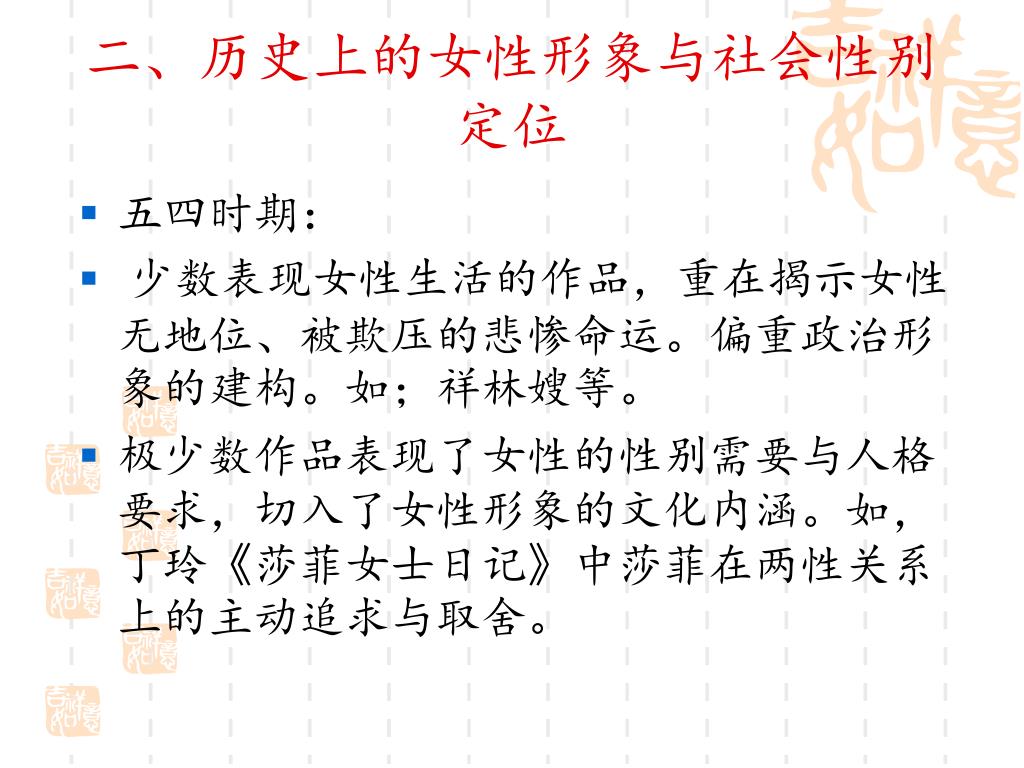 二、历史上的女性形象与社会性别
定位
五四时期：
少数表现女性生活的作品，重在揭示女性
无地位、被欺压的悲惨命运。偏重政治形
象的建构。如；祥林嫂等。
极少数作品表现了女性的性别需要与人格
要求，切入了女性形象的文化内涵。如，
丁玲《莎菲女士日记》中莎菲在两性关系
上的主动追求与取舍。
吉祥如意
吉祥如意
吉祥如意
吉祥如意
吉祥如意
吉祥如意
吉祥如意